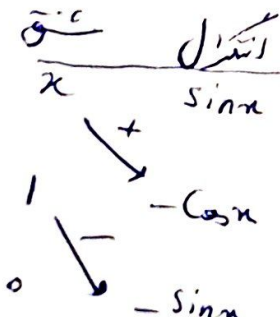 مشتق انتگرال
x sinx
+
1 -Cosx
-
0 -Sinx